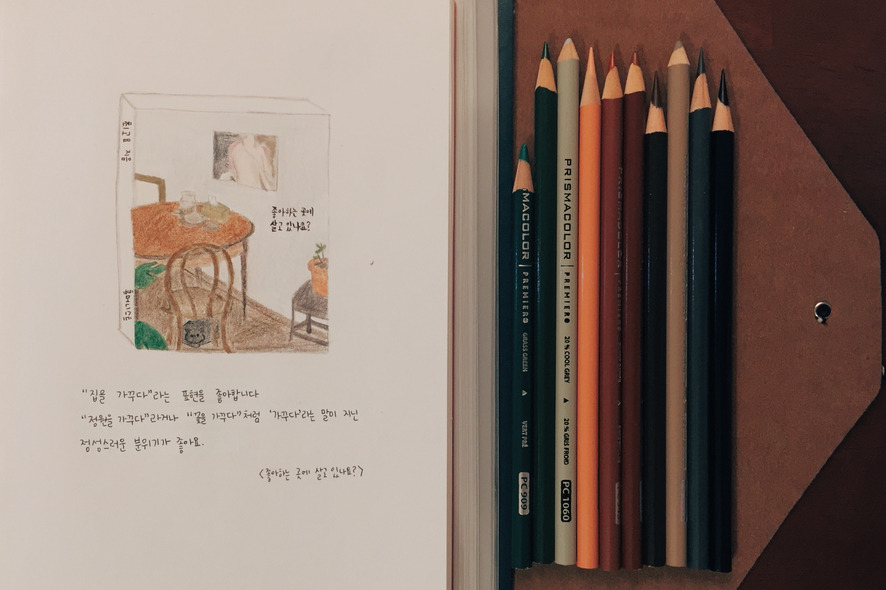 최고요 지음
좋아하는 곳에
살고 있나요?
휴머니스트
“집을 가꾸다”라는 표현을 좋아합니다
“정원을 가꾸다”라거나 “꽃을 가꾸다”처럼 ‘가꾸다’라는 말이 지닌
정성스러운 분위기가 좋아요.
<좋아하는 곳에 살고 있나요?>
MACOLOR PREMIER GRASS GREEN VERT PRÉ PC 909
PRISMACOLOR PREMIER 20% COOL GREY 20% GRIS FROID PC 1060
PRISMACOLOR